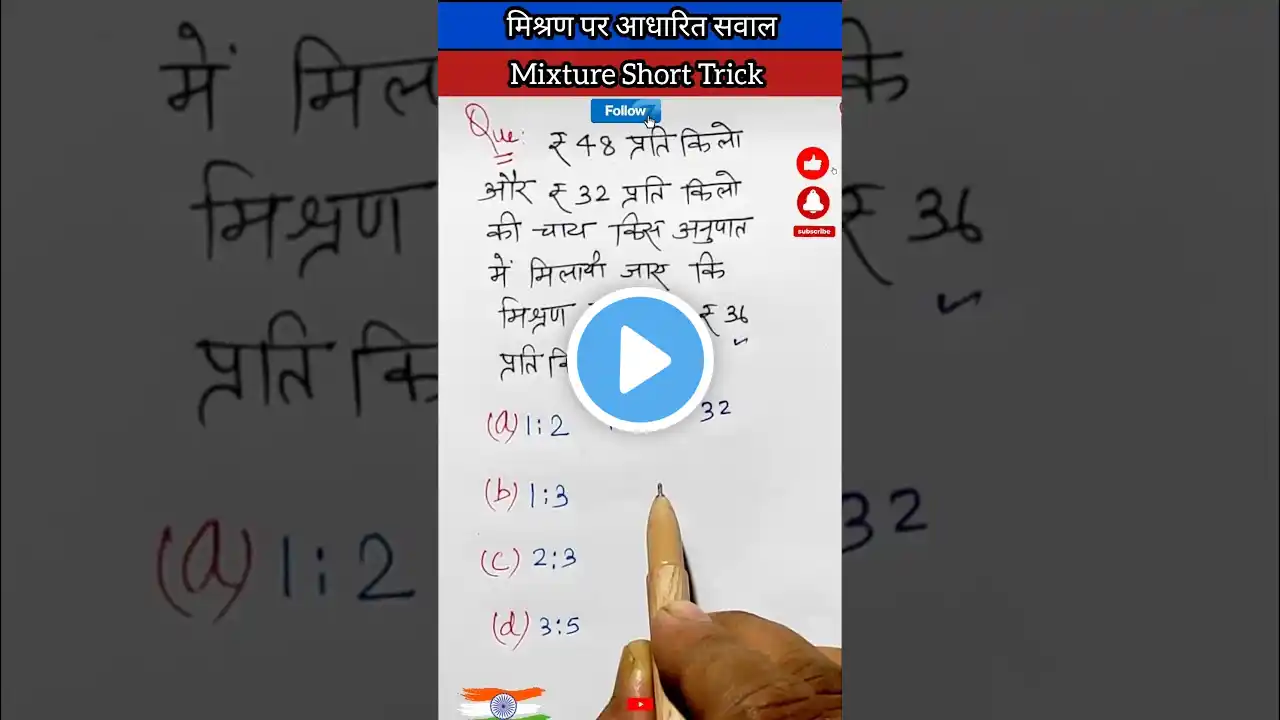 मिश्रण पर आधारित सवाल
Mixture Short Trick
Follow
Que: ₹ 48 प्रति किलो
और ₹ 32 प्रति किलो
की चाय किस अनुपात
में मिलायी जाए कि
मिश्रण ₹ 36
प्रति
(a) 1:2 32
(b) 1:3
(c) 2:3
(d) 3:5
subscribe
में
मिश्रण ₹ 36
प्रति
(a) 1:2 32